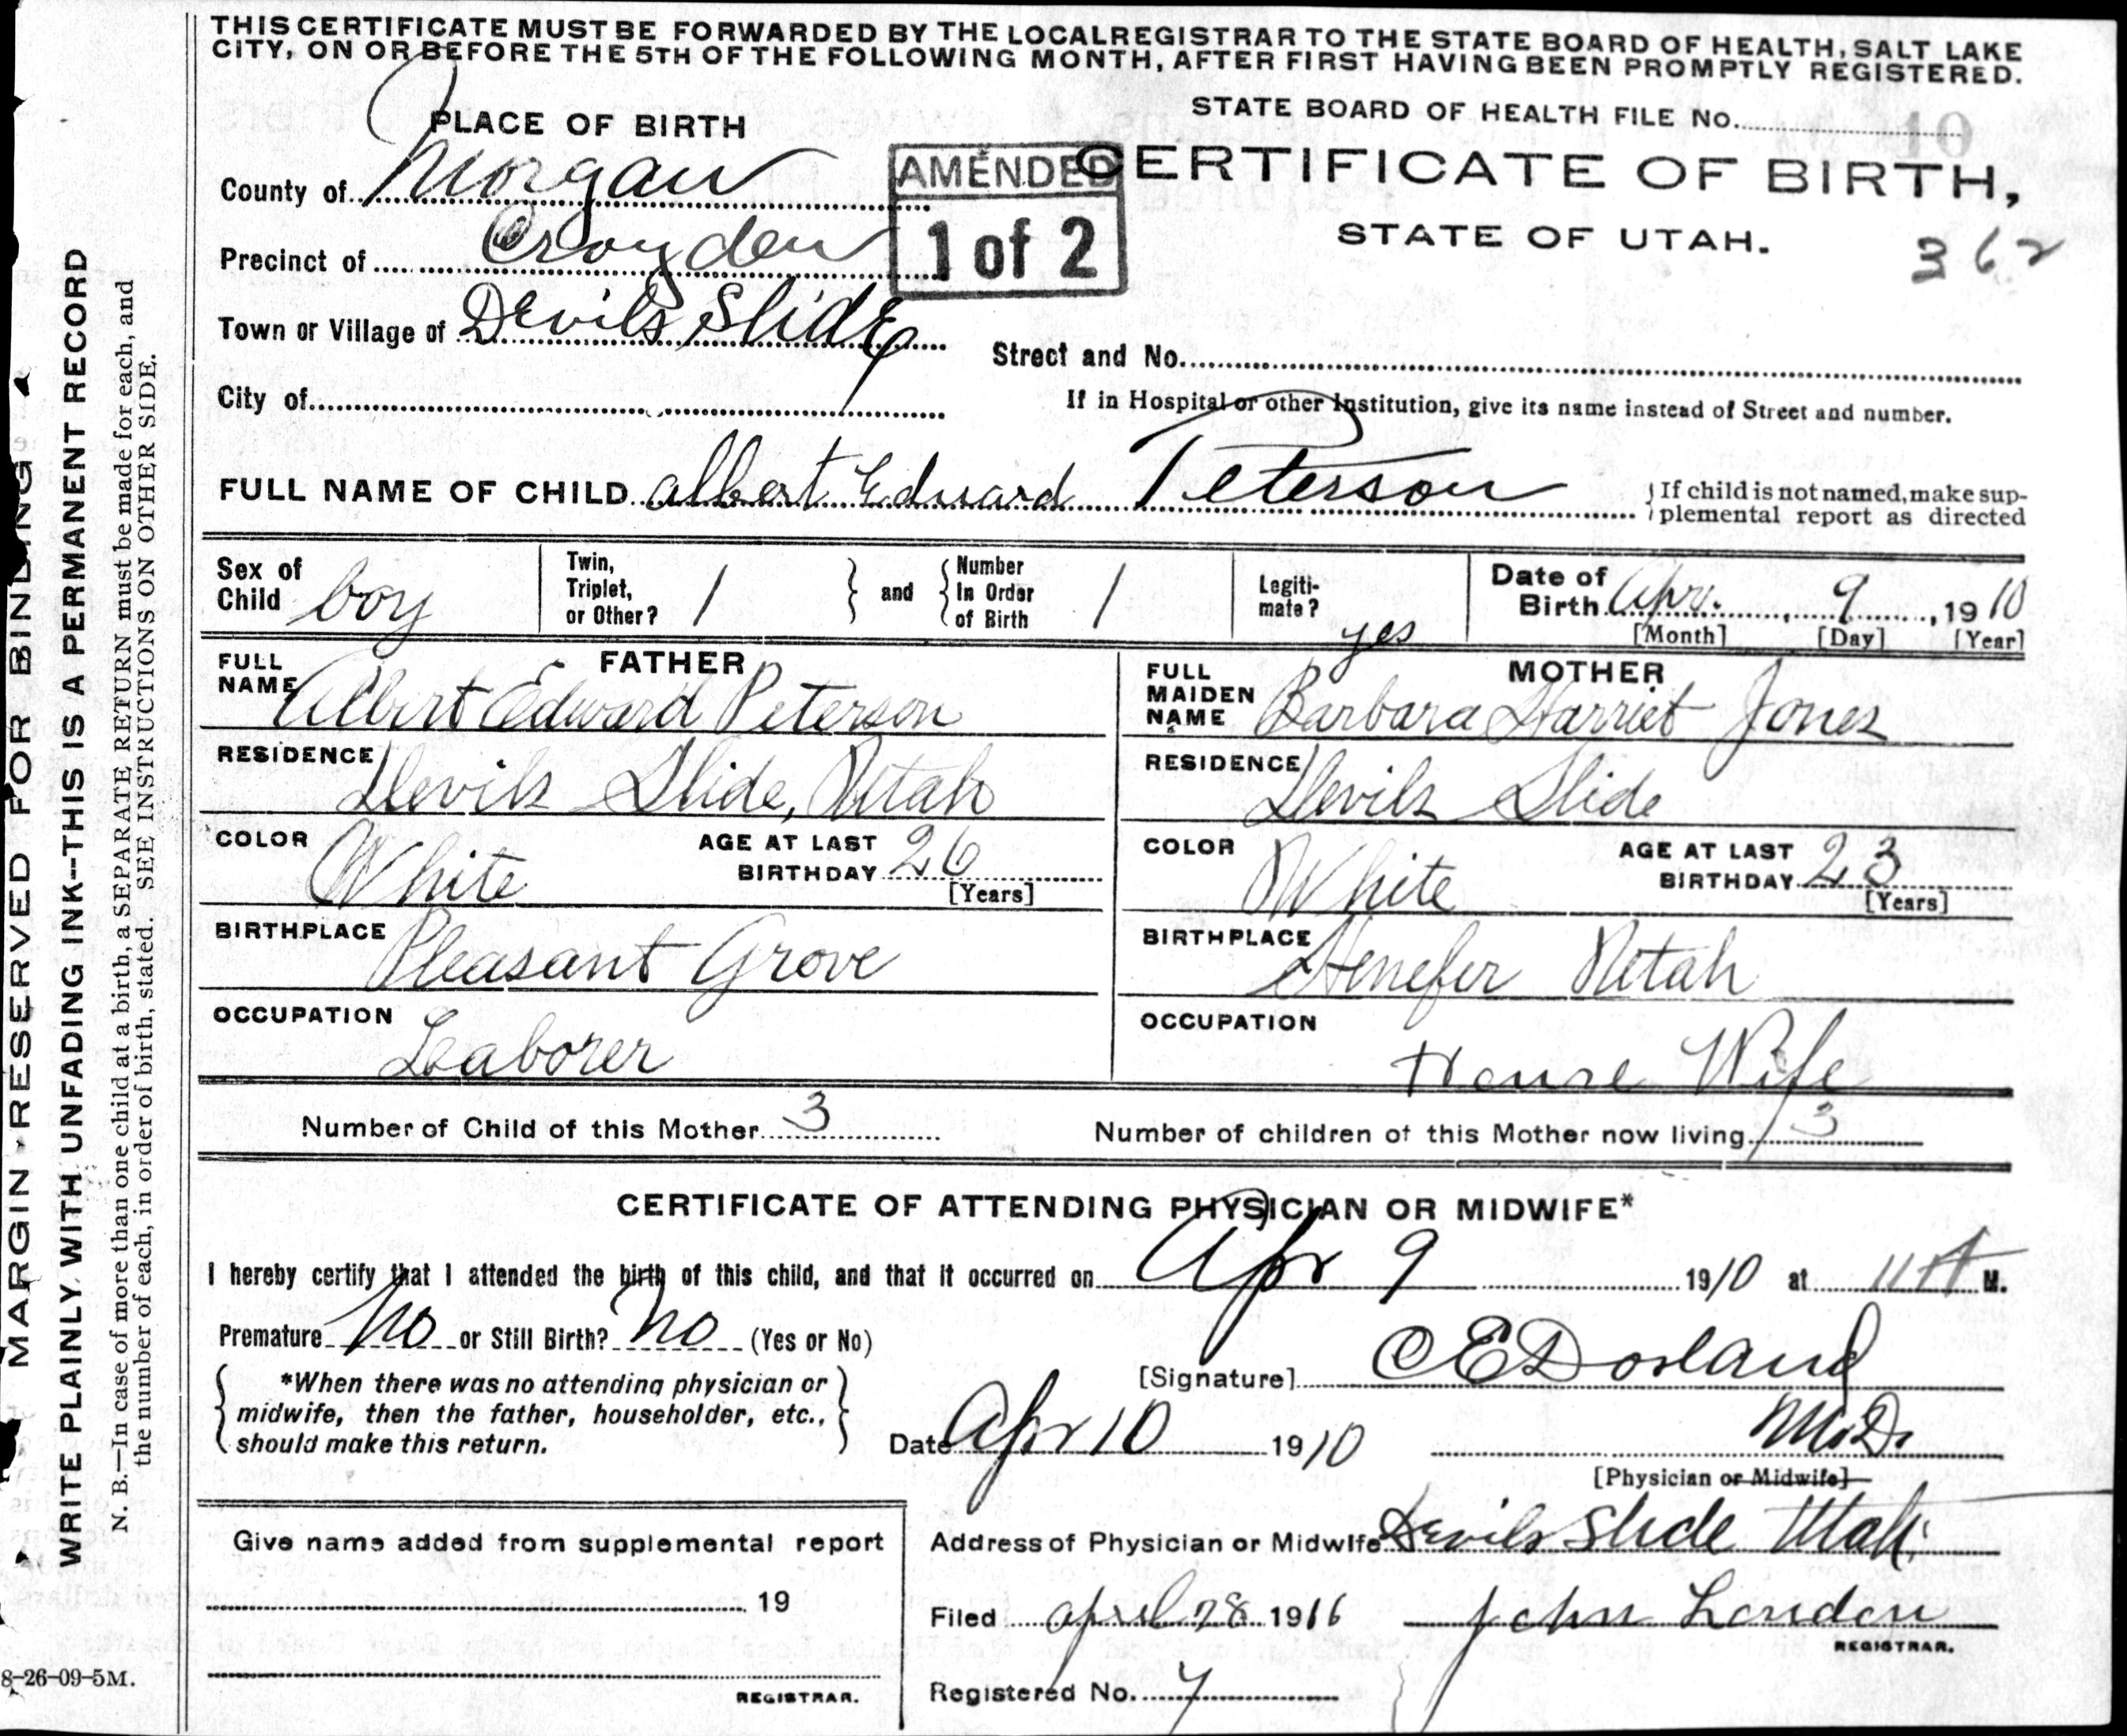 THIS CERTIFICATE MUST BE FORWARDED BY THE LOCAL REGISTRAR TO THE STATE BOARD OF HEALTH, SALT LAKE
CITY, ON OR BEFORE THE 5TH OF THE FOLLOWING MONTH, AFTER FIRST HAVING BEEN PROMPTLY REGISTERED.
PLACE OF BIRTH
STATE BOARD OF HEALTH FILE No. 10
County of Morgan
AMENDED
1 of 2
CERTIFICATE OF BIRTH,
STATE OF UTAH.
362
Precinct of Croyden
Town or Village of Devils Slide
Street and No.
City of
If in Hospital or other Institution, give its name instead of Street and number.
FULL NAME OF CHILD Albert Edward Peterson
If child is not named, make sup-
plemental report as directed
Sex of Child boy
Twin, Triplet, or Other? 1
and
Number In Order of Birth 1
Legiti-mate? yes
Date of Birth Apr. 9, 1910
[Month] [Day] [Year]
FATHER
FULL NAME Albert Edward Peterson
RESIDENCE Devils Slide, Utah
COLOR White
AGE AT LAST BIRTHDAY 26
[Years]
BIRTHPLACE Pleasant Grove
OCCUPATION Leaborer
MOTHER
FULL MAIDEN NAME Barbara Harriet Jones
RESIDENCE Devils Slide
COLOR White
AGE AT LAST BIRTHDAY 23
[Years]
BIRTHPLACE Henefer Utah
OCCUPATION House Wife
Number of Child of this Mother 3
Number of children of this Mother now living 3
CERTIFICATE OF ATTENDING PHYSICIAN OR MIDWIFE*
I hereby certify that I attended the birth of this child, and that it occurred on Apr 9 1910 at 11 A M.
Premature no or Still Birth? no (Yes or No)
*When there was no attending physician or
midwife, then the father, householder, etc.,
should make this return.
[Signature] C E Dorland
M.D.
Date Apr 10 1910
[Physician or Midwife]
Give name added from supplemental report
19
REGISTRAR.
Address of Physician or Midwife Devils Slide Utah
Filed April 28 1916 John London
REGISTRAR.
Registered No. 7
MARGIN RESERVED FOR BINDING
WRITE PLAINLY, WITH UNFADING INK--THIS IS A PERMANENT RECORD
N. B.—In case of more than one child at a birth, a SEPARATE RETURN must be made for each, and
the number of each, in order of birth, stated. SEE INSTRUCTIONS ON OTHER SIDE.
8-26-09-5M.